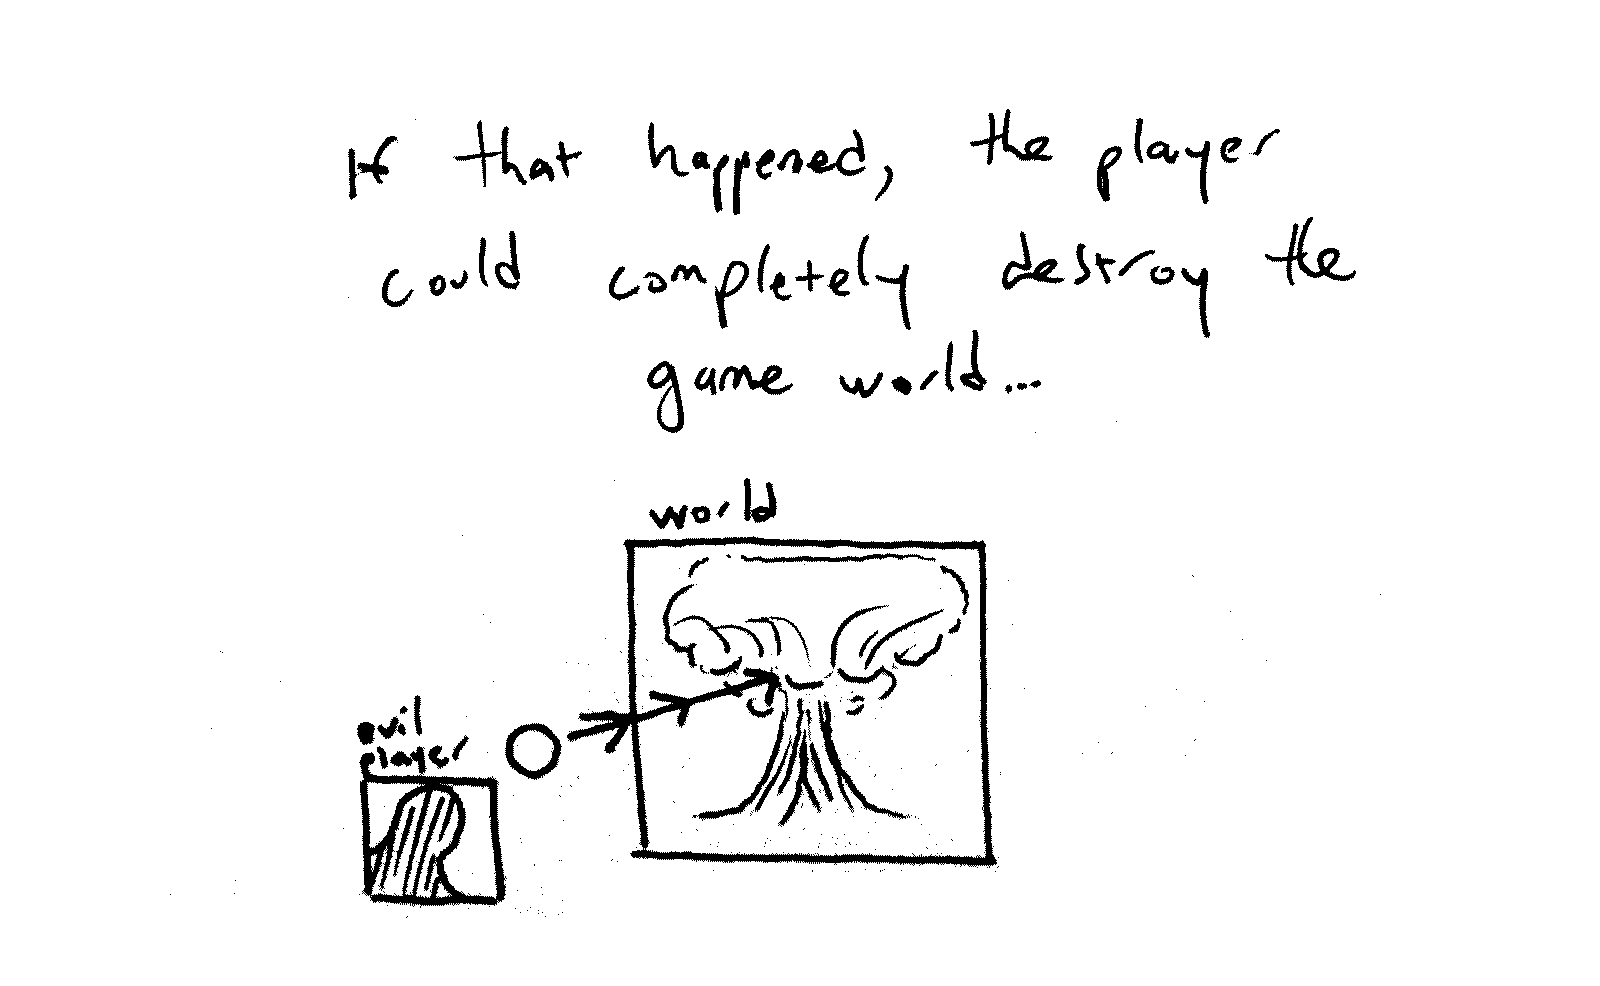 If that happened, the player
could completely destroy the
game world...
world
evil
player